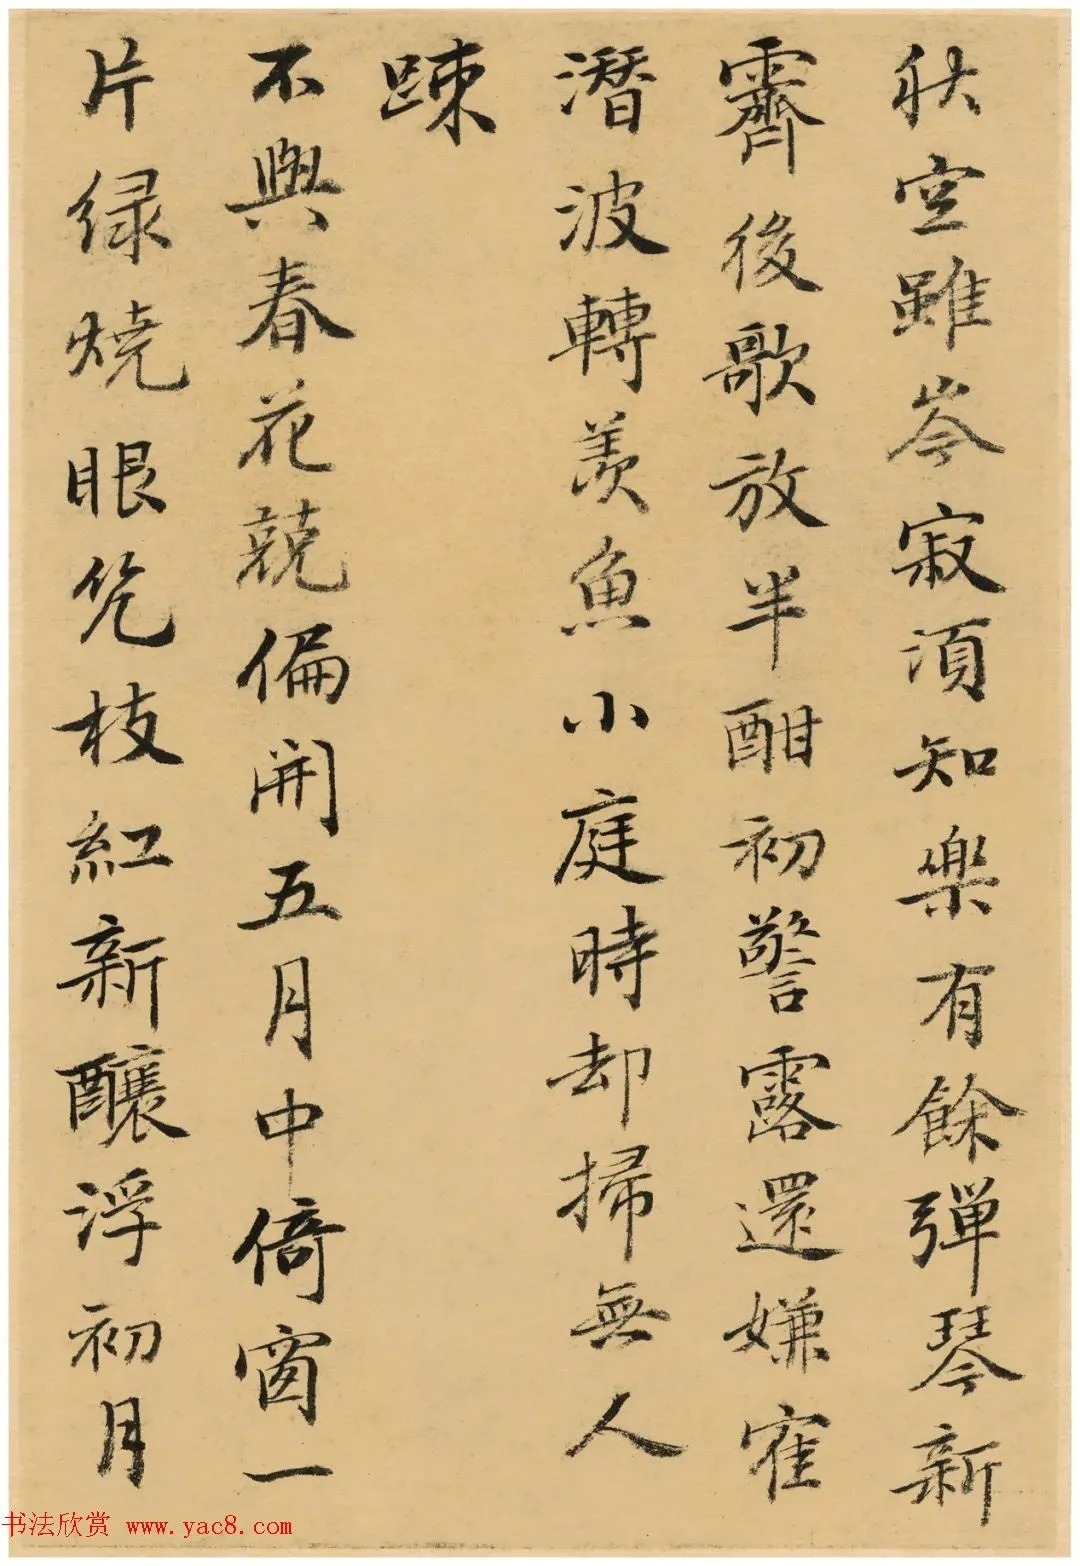 秋空雖岑寂須知樂有餘彈琴新
霽後歌放半酣初警露還嫌寉
潛波轉羨魚小庭時却掃無人
踈
不與春花競偏開五月中倚窗一
片緑燒眼幾枝紅新釀浮初月
书法欣赏 www.yac8.com